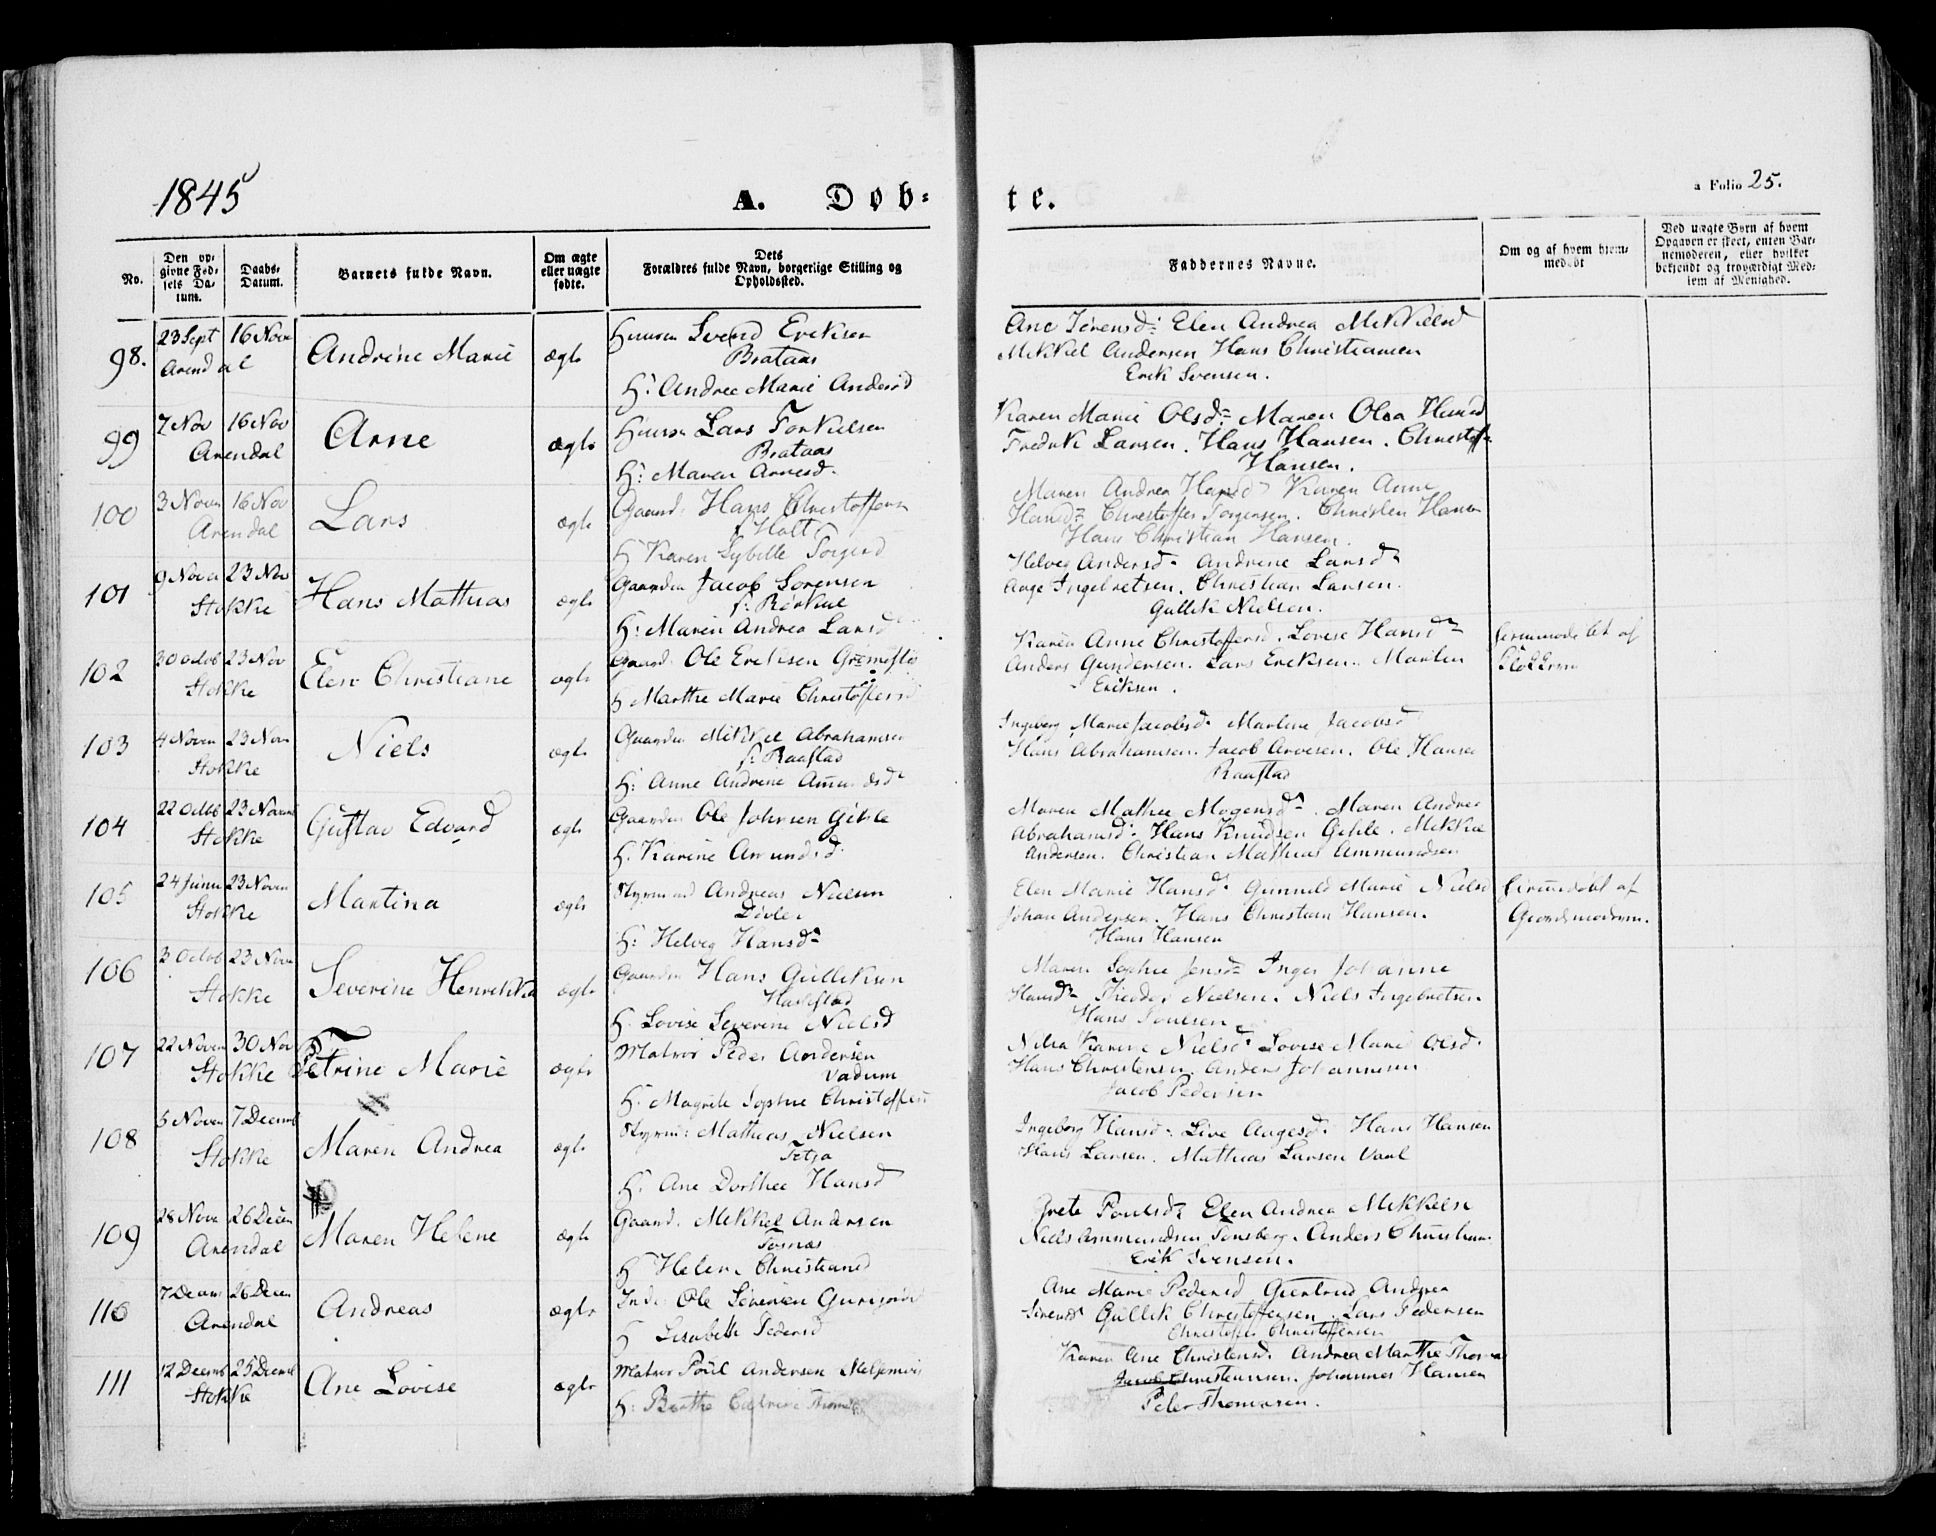 1845
A. Døb-
te.
a Folio 25.
No.
Den op-
givne Fød-
sels Da-
tum.
Daabs-
Datum.
Barnets fulde Navn.
Om ægte
eller uægte
fødte.
Dets
Forældres fulde Navn, borgerlige Stilling og
Opholdssted.
Faddernes Navne.
Om og af hvem hjem-
medøbt
Ved uægte Børn af hvem
Opgaven er skeet, enten Bar-
nemoderen, eller hvilket
bekjendt og troværdigt Med-
lem af Menighed.
98.
23 Sept 16 Novem
Arendal
Andrine Marie
ægte
Svend Eriksen
Brataas
H: Andrea Marie Andersd
Ane Sørensd: Elen Andrea Mikkelsd
Mikkel Andersen Hans Christiansen
Erik Svensen.
99
7 Nov 16 Nov
Arendal
Arne
ægte
Lars Torkielsen
Brataas
H: Maren Arnesd.
Karen Marie Olsd: Maren Olea Hansd
Fredrik Larsen. Hans Hansen. Christoff
Hansen.
100
3 Novem 16 Nov
Arendal
Lars
ægte
Gaard: Hans Christoffersen
Holt
H Karen Sybille Torgersd
Maren Andrea Hansd Karen Anne
Hansd: Christoffer Torgersen. Christen Hansen
Hans Christian Hansen.
101
9 Novem 23 Nov
Stokke
Hans Mathias
ægte
Gaardm Jacob Sørensen
f: Rørkul
H: Maren Andrea Larsd
Helveg Andersd. Andrine Larsd.
Aage Ingebretsen. Christian Larsen.
Gullik Nielsen.
102
30 Octob 23 Nov
Stokke
Elen Christiane
ægte
Gaard: Ole Eriksen
H Marthe Marie Christoffersd
Karen Anne Christoffersd. Lovise Hansd
Anders Gundersen. Lars Eriksen. Martin
Eriksen.
hjemmedøbt af
103
4 Novem 23 Nov
Stokke
Niels
ægte
Gaardm Mikkel Abrahamsen
f: Raastad
H: Anne Andrine Amundsd
Ingeborg Marie Jacobsd. Marlene Jacobsd
Hans Abrahamsen. Jacob Arvesen. Ole Hansen
Raastad
104
22 Octob 23 Novemb
Stokke
Gustav Edvard
ægte
Gaardm Ole Johnsen Gihle
H. Karine Amundsd.
Maren Mathea Mogensd. Maren Andrea
Abrahamsd. Hans Knudsen Gihle. Mikkel
Andersen. Christian Mathias Ammundsen
105
24 Juni 23 Novem
Stokke
Martina
ægte
Styrmand Andreas Nielsen
H: Helveg Hansd
Elen Marie Hansd. Gunnild Marie Nielsd
Johan Andersen. Hans Christian Hansen.
Hans Hansen
hjemmedøbt af
Gjordmodern.
106
3 Octob 23 Novem
Stokke
Severine Henrikka
ægte
Gaardm Hans Gulliksen
Harkstad
H. Lovise Severine Nielsd
Maren Sophie Jensd Inger Johanne
Hansd. Theodor Nielsen. Niels Ingebretsen
Hans Poulsen
107
22 Novem 30 Nov
Stokke
Petrine Marie
ægte
Matros Peder Andersen
Vadum
H. Magrete Sophie Christoffersd
Karine Nielsd. Lovise Marie Olsd.
Hans Christensen. Anders Johannesen
Jacob Pedersen
108
5 Novem 7 Decemb
Stokke
Maren Andrea
ægte
Styrm: Mathias Nielsen
H. Ane Dorthee Hansd
Ingeborg Hansd. Live Aagesd. Hans Hansen
Hans Larsen. Mathias Larsen Vaal
109
28 Nove 26 Decem
Arendal
Maren Helene
ægte
Gaard. Mikkel Andersen
Tornæs
H Helene Christiansd
Grete Poulsd. Elen Andrea Mikkelsd
Niels Ammundsen Tønsberg. Anders Christian.
Erik Svensen.
110
7 Decem 26 Decem
Arendal
Andreas
ægte
Ind. Ole Sørensen
H Lisabeth Pedersd
Ane Marie Pedersd Giertrud Andrea
Sørensd Gullik Christoffersen. Lars Pedersen
Christoffer Christoffersen
111
12 Decemb 25 Decemb
Stokke
Ane Lovise
ægte
Matros Poul Andersen
H: Berthe Cathrine
Karen Ane Christensd. Andrea Marthe Thomas
Jacob Christiansen. Johannes Hansen
Peter Thomasen.